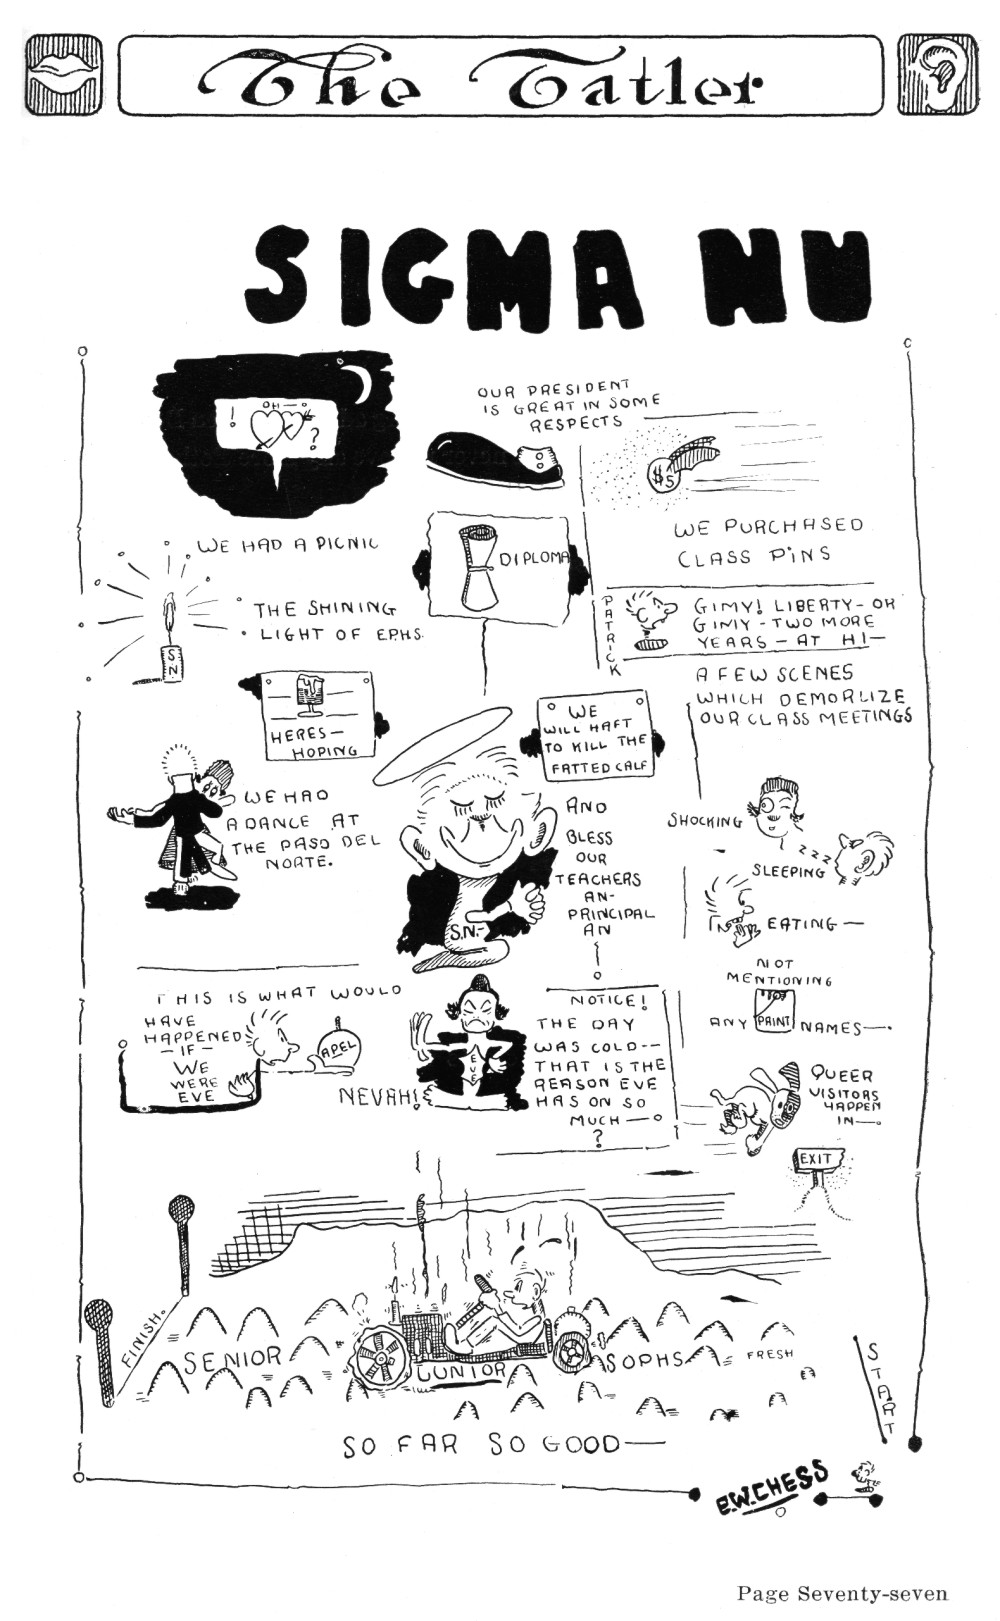 The Tatler
SIGMA NU
OH—O
! ?
WE HAD A PICNIC
OUR PRESIDENT
IS GREAT IN SOME
RESPECTS
$5
WE PURCHASED
CLASS PINS
DIPLOMA
THE SHINING
LIGHT OF E.P.H.S.
S
N
PATRICK
GIMY! LIBERTY-OR
GIMY-TWO MORE
YEARS-AT HI—
HERES—
HOPING
WE
WILL HAFT
TO KILL THE
FATTED CALF
A FEW SCENES
WHICH DEMORLIZE
OUR CLASS MEETINGS
WE HAD
A DANCE AT
THE PASO DEL
NORTE.
S.N.-
AND
BLESS
OUR
TEACHERS
AN-
PRINCIPAL
AN
SHOCKING
ZZZ
SLEEPING
EATING—
NOT
MENTIONING
ANY PAINT NAMES—.
THIS IS WHAT WOULD
HAVE
HAPPENED
—IF—
WE
WERE
EVE
APEL
NEVAH!
EVE
NOTICE!
THE DAY
WAS COLD--
THAT IS THE
REASON EVE
HAS ON SO
MUCH—O
?
QUEER
VISITORS
HAPPEN
IN—.
EXIT
FINISH.
SENIOR
JUNIOR
SOPHS
FRESH
START
SO FAR SO GOOD—
E.W.CHESS
Page Seventy-seven